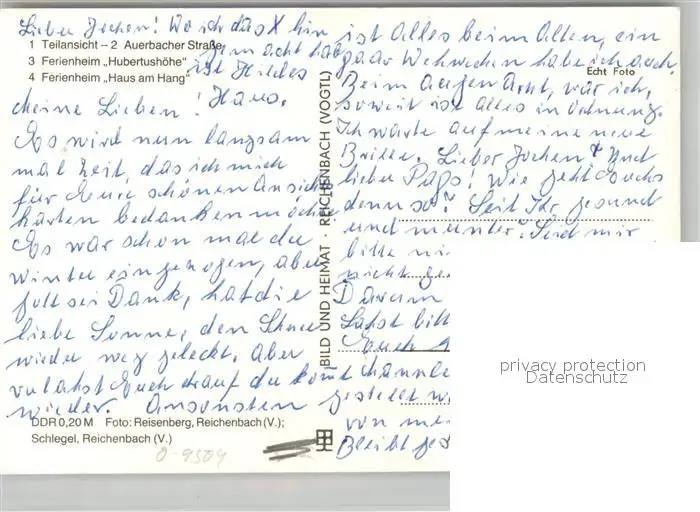 Lieber Jochen! Wo ich das X hin
gemacht hab
ist Hildes
Haus.
1 Teilansicht – 2 Auerbacher Straße
3 Ferienheim „Hubertushöhe"
4 Ferienheim „Haus am Hang"
Meine Lieben!
Es wird nun langsam
mal Zeit, das ich mich
für Eure schönen Ansichts
karten bedanken möchte
Es war schon mal der
Winter eingezogen, aber
Gott sei Dank, hat die
liebe Sonne, den Schnee
wieder weg geleckt. Aber
verlahst Euch drauf der komt
wieder. Ansonsten
ist Alles beim Alten, ein
paar Wehwehen habe ich auch.
Beim Augenarzt, war ich,
soweit ist alles in Ordnung.
Ich warte auf meine neue
Brille. Lieber Jochen & Und
lieber Paps! Wie geht Euchs
denn so? Seid Ihr gesund
und munter? Seid mir
bitte ni
nicht
Darum
Lahst bitt
Euch
gestellt w
von me
Bleibt ges
Echt Foto
BILD UND HEIMAT · REICHENBACH (VOGTL)
DDR 0,20 M Foto: Reisenberg, Reichenbach (V.);
Schlegel, Reichenbach (V.)
0-9504
privacy protection
Datenschutz